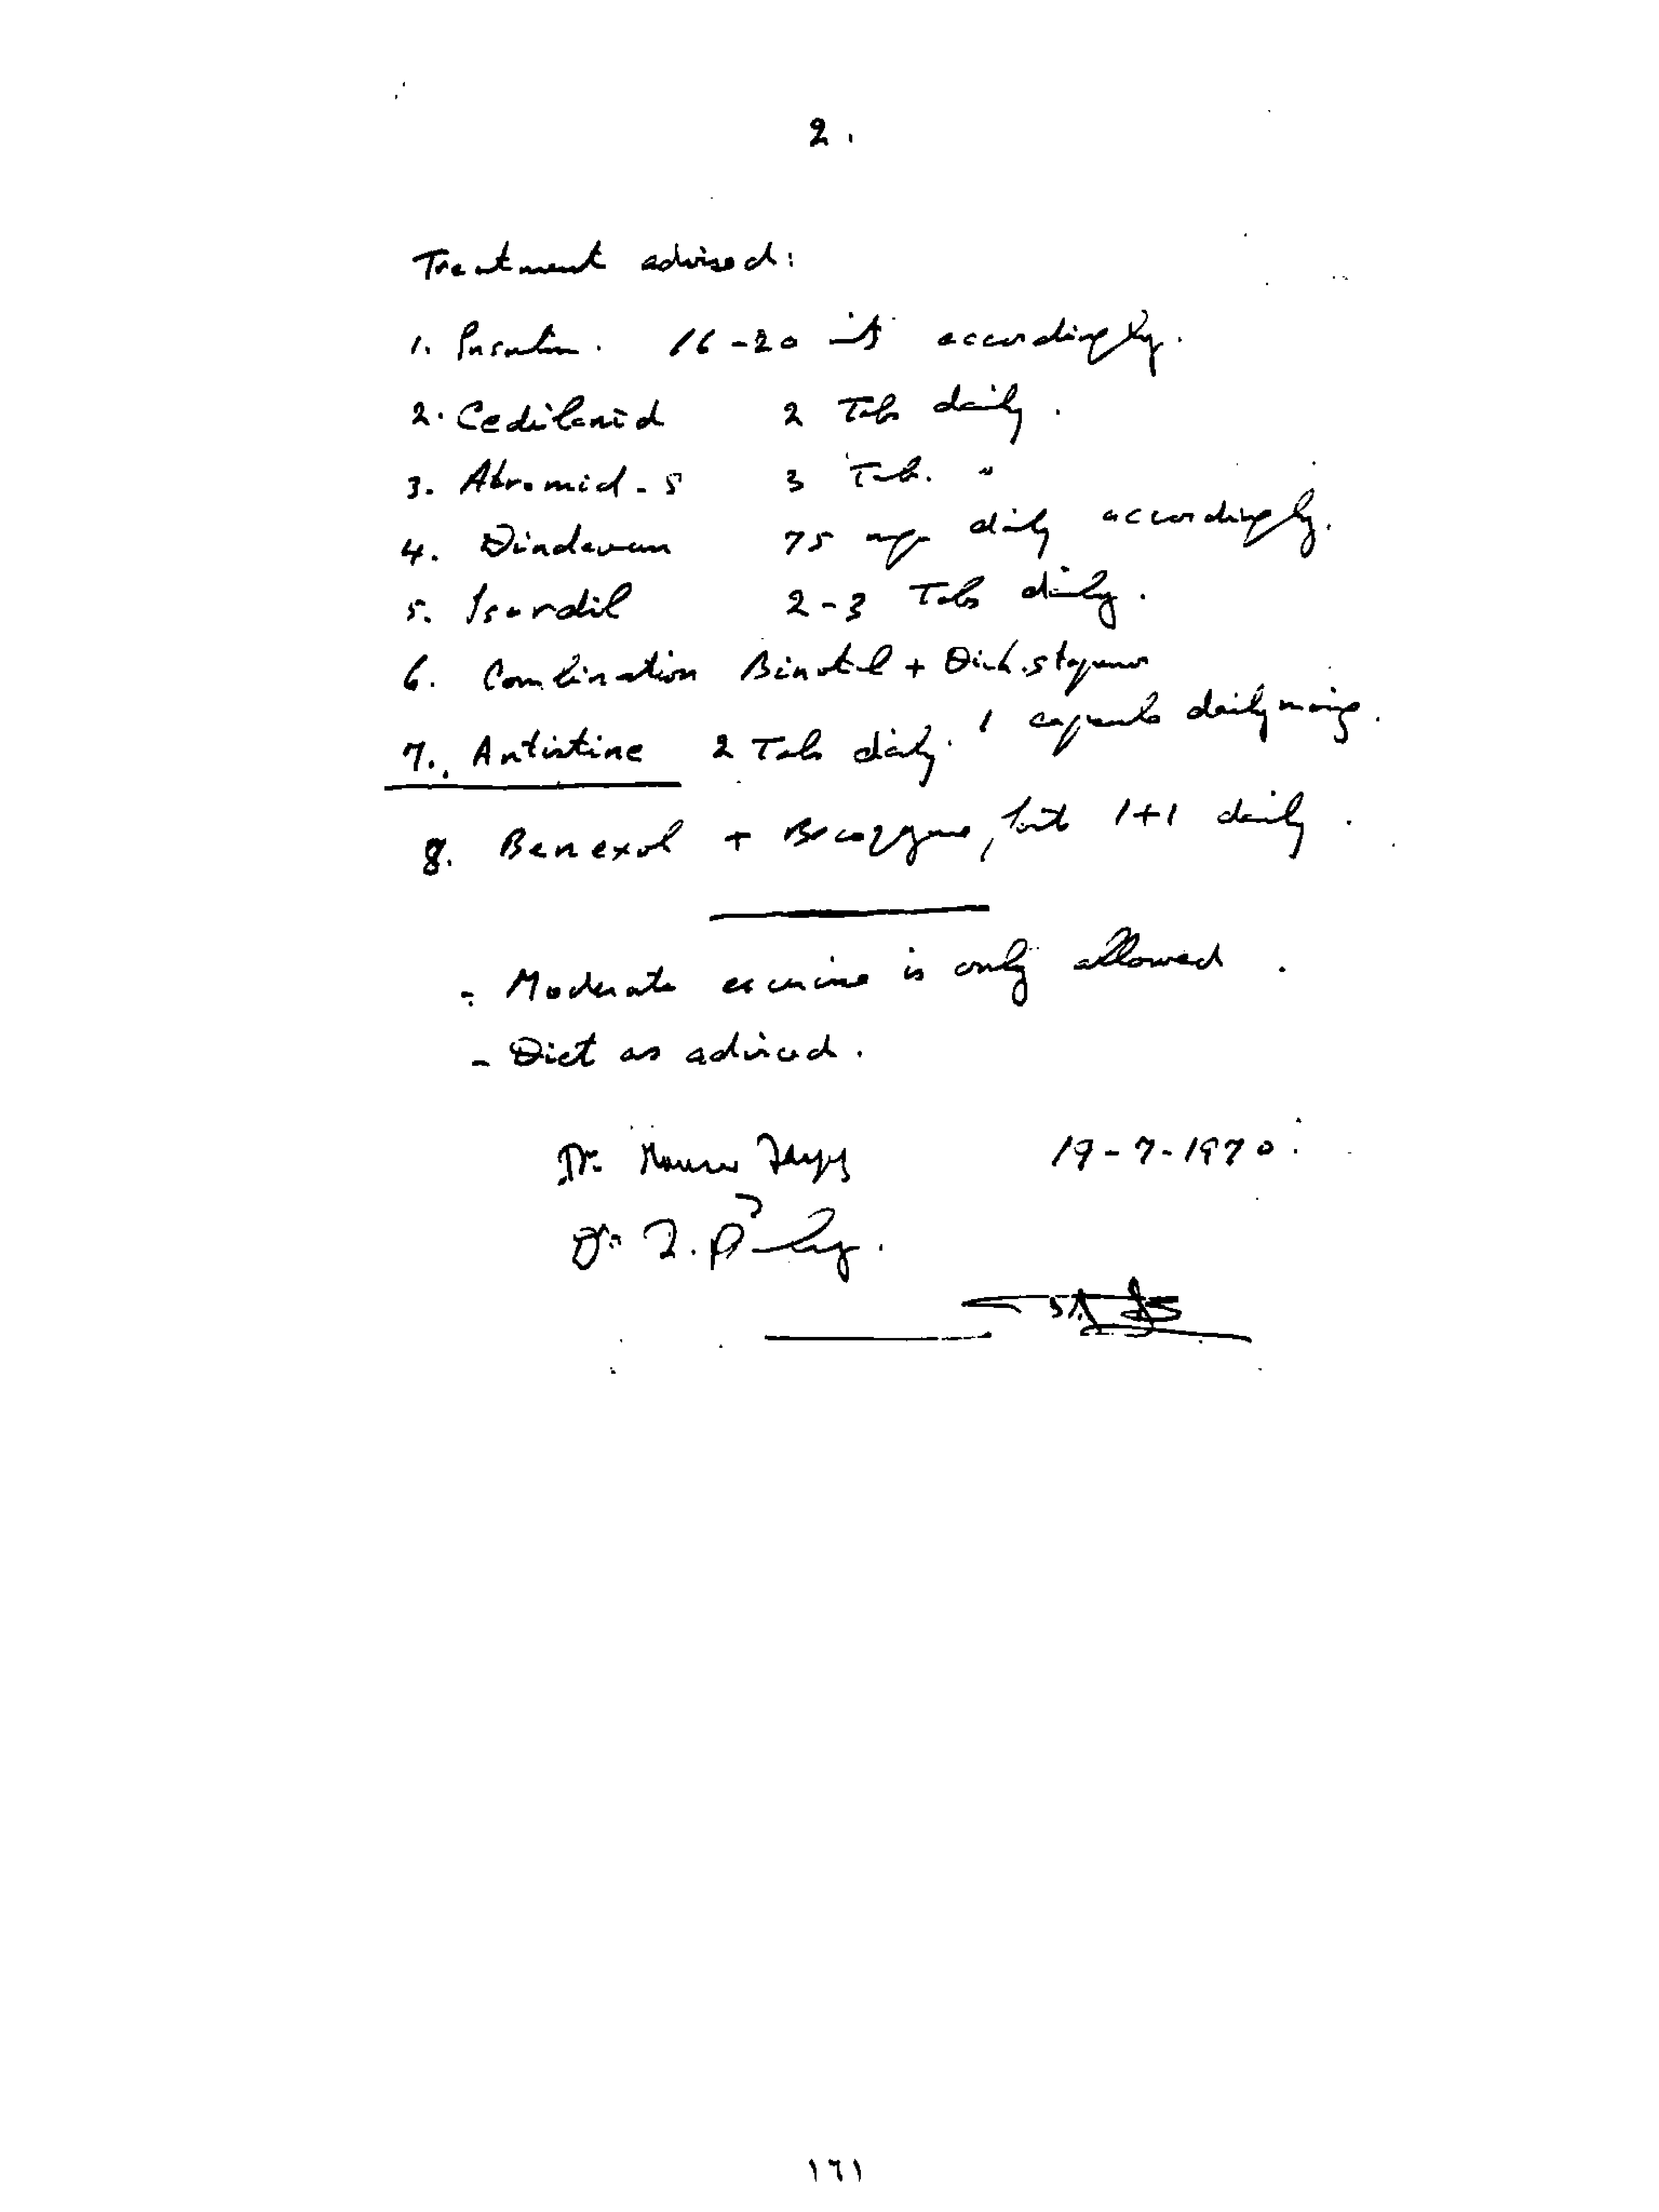 2.
Treatment advised:
1. Insulin. 16-20 accordingly.
2. Cedilanid 2 Tabs daily.
3. Atromid-S 3 Tab. "
4. Dindevan 75 mg daily accordingly.
5. Isordil 2-3 Tabs daily.
6. Combination Binotal +
1 capsule daily
7. Antistine 2 Tabs daily.
8. Benexol + Becozyme, forte 1+1 daily.
- Moderate exercise is only allowed.
- Diet as advised.
Dr. 19-7-1970.
Dr.
١٦١